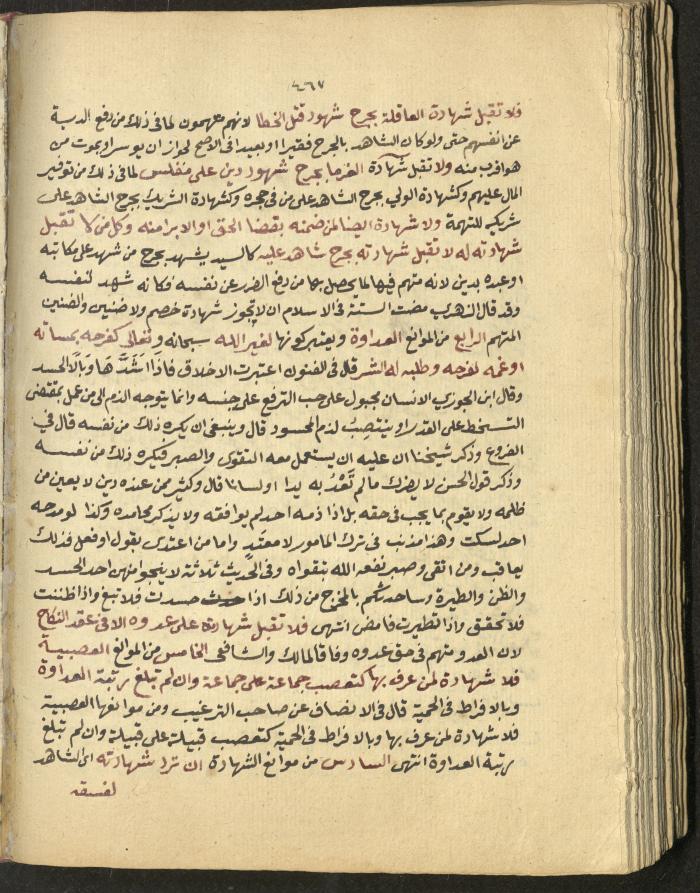 ٤٦٧
فلا تقبل شهادة العاقلة بجرح شهود قتل الخطا لانهم متهمون لما في ذلك من دفع الدية
عن انفسهم حتى ولو كان الشاهد بالجرح فقيرا او بعيدا في الاصح لجواز ان يوسر او يموت من
هو اقرب منه ولا تقبل شهادة الغرما بجرح شهود دين على مفلس لما في ذلك من توفير
المال عليهم وكشهادة الولي بجرح الشاهد على من في حجره وكشهادة الشريك بجرح الشاهد على
شريكه للتهمة ولا شهادة الضامن لمن ضمنه بقضا الحق او الابرا منه وكل من لا تقبل
شهادته له لا تقبل شهادته بجرح شاهد عليه كالسيد يشهد بجرح من شهد على مكاتبه
او عبده بدين لانه متهم فيها لما يحصل بها من دفع الضرر عن نفسه فكانه شهد لنفسه
وقد قال الزهري مضت السنة في الاسلام ان لا تجوز شهادة خصم ولا ضنين والضنين
المتهم الرابع من الموانع العداوة ويعتبر كونها لغير الله سبحانه وتعالى كفرحه بمساته
او غمه لفرحه وطلبه له الشر قال في الفنون اعتبرت الاخلاق فاذا اشدها وبالا الحسد
وقال ابن الجوزي الانسان مجبول على حب الترفع على جنسه وانما يتوجه الذم الى من عمل بمقتضى
التسخط على القدر او ينتصب لذم المحسود قال وينبغي ان يكره ذلك من نفسه قال في
الفروع وذكر شيخنا ان عليه ان يستعمل معه التقوى والصبر فيكره ذلك من نفسه
وذكر قول الحسن لا يضرك ما لم تعد به يدا او لسانا قال وكثير ممن عنده دين لا يعين من
ظلمه ولا يقوم بما يجب في حقه بل اذا ذمه احد لم يوافقه ولا يذكر محامده وكذا لو مدحه
احد لسكت وهذا مذنب في ترك المامور لا معتد واما من اعتدى بقول او فعل فذلك
يعاقب ومن اتقى وصبر نفعه الله بتقواه وفي الحديث ثلاثة لا ينجوا منهن احد الحسد
والظن والطيرة وساحدثكم بالمخرج من ذلك اذا حسدت فلا تبغ واذا ظننت
فلا تحقق واذا تطيرت فامض انتهى فلا تقبل شهادة على عدوه الا في عقد النكاح
لان العدو متهم في حق عدوه وفاقا لمالك والشافعي الخامس من الموانع العصبية
فلا شهادة لمن عرف بها كتعصب جماعة على جماعة وان لم تبلغ رتبة العداوة
وبالافراط في الحمية قال في الانصاف عن صاحب الترغيب ومن موانعها العصبية
فلا شهادة لمن عرف بها وبالافراط في الحمية كتعصب قبيلة على قبيلة وان لم تبلغ
رتبة العداوة انتهى السادس من موانع الشهادة ان ترد شهادته اي الشاهد
لفسقه